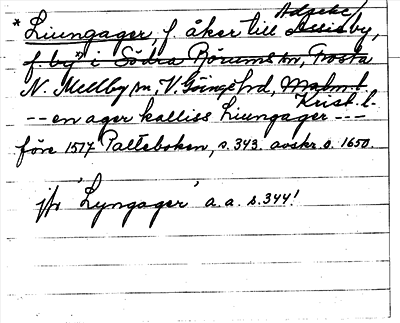 * Liungager, f. åker till Assis by,
f. by i Södra Rörums sn, Frosta
N. Mellby sn, V. Göinge hd, Malm. l.
Krist. l.
-- en ager kalliss Liungager ---
före 1517 Palteboken, s. 343. avskr. o. 1650.
jfr 'Lyngager' a.a. s. 344!